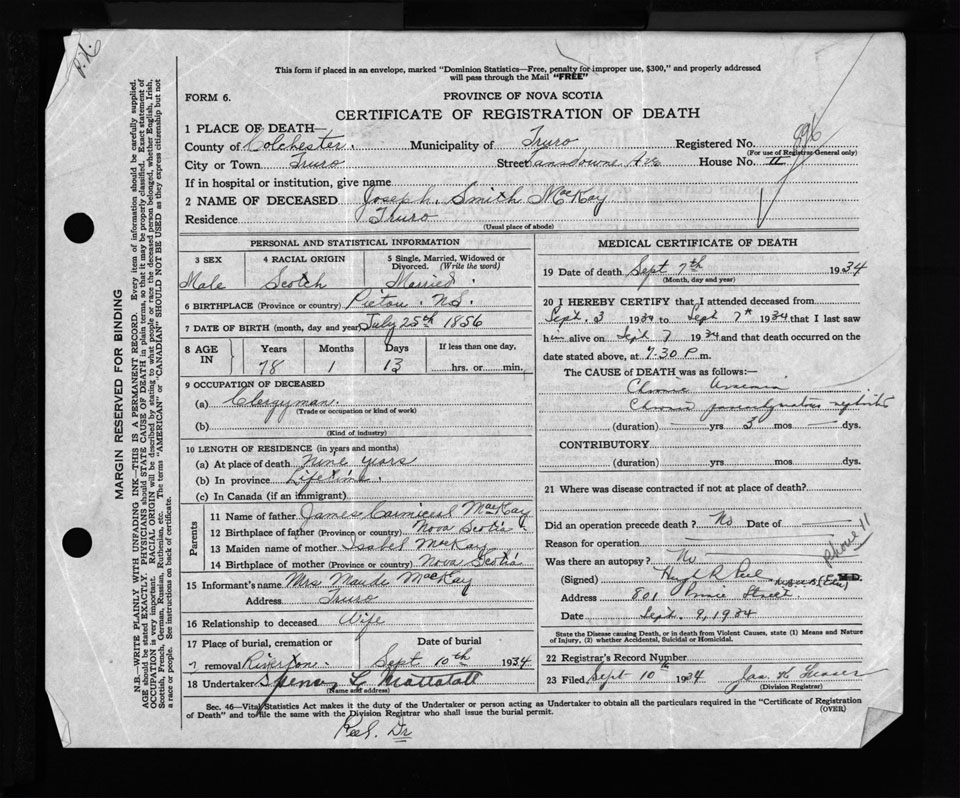 P.N.
This form if placed in an envelope, marked "Dominion Statistics—Free, penalty for improper use, $300," and properly addressed
will pass through the Mail "FREE"
FORM 6.
PROVINCE OF NOVA SCOTIA
CERTIFICATE OF REGISTRATION OF DEATH
1 PLACE OF DEATH—
County of Colchester. Municipality of Truro Registered No. 896
(For use of Registrar General only)
City or Town Truro Street Lansdowne Ave House No. 11
If in hospital or institution, give name
2 NAME OF DECEASED Joseph. Smith MacKay
Residence Truro
(Usual place of abode)
MARGIN RESERVED FOR BINDING
N.B.—WRITE PLAINLY WITH UNFADING INK—THIS IS A PERMANENT RECORD. Every item of information should be carefully supplied.
AGE should be stated EXACTLY. PHYSICIANS should STATE CAUSE OF DEATH in plain terms, so that it may be properly classified. Exact statement of
OCCUPATION is very important. RACIAL ORIGIN will be described by stating to what people or race the deceased person belonged, whether English, Irish,
Scottish, French, German, Russian, Ruthenian, etc. The terms "AMERICAN" or "CANADIAN" SHOULD NOT BE USED as they express citizenship but not
a race or people. See instructions on back of certificate.
PERSONAL AND STATISTICAL INFORMATION
3 SEX 4 RACIAL ORIGIN 5 Single, Married, Widowed or
Divorced. (Write the word)
Male Scotch Married
6 BIRTHPLACE (Province or country) Pictou. N.S.
7 DATE OF BIRTH (month, day and year) July 25th 1856
8 AGE IN Years Months Days If less than one day,
78 1 13 hrs. or min.
9 OCCUPATION OF DECEASED
(a) Clergyman.
(Trade or occupation or kind of work)
(b)
(Kind of industry)
10 LENGTH OF RESIDENCE (in years and months)
(a) At place of death nine years
(b) In province Lifetime.
(c) In Canada (if an immigrant)
Parents
11 Name of father James Carmicul MacKay
12 Birthplace of father (Province or country) Nova Scotia
13 Maiden name of mother Isabel MacKay
14 Birthplace of mother (Province or country) Nova Scotia
15 Informant's name Mrs Maude MacKay
Address Truro
16 Relationship to deceased Wife
17 Place of burial, cremation or Date of burial
removal Riverton Sept 10th 1934
18 Undertaker Spencer L. Mattatall
(Name and address)
MEDICAL CERTIFICATE OF DEATH
19 Date of death Sept 7th 1934
(Month, day and year)
20 I HEREBY CERTIFY that I attended deceased from
Sept. 3 1934 to Sept 7th 1934 that I last saw
him alive on Sept 7 1934 and that death occurred on the
date stated above, at 7.30 P.m.
The CAUSE of DEATH was as follows:—
Chronic Uraemia
Chronic parenchymatous nephritis
(duration) — yrs 3 mos — dys.
CONTRIBUTORY
(duration) yrs mos dys.
21 Where was disease contracted if not at place of death?
Did an operation precede death? No Date of —
Reason for operation
Was there an autopsy? No
phone 11
(Signed) Hugh R Peel M.D.
Address 801 Prince Street.
Date Sept. 9, 1934
State the Disease causing Death, or in death from Violent Causes, state (1) Means and Nature
of Injury, (2) whether Accidental, Suicidal or Homicidal.
22 Registrar's Record Number
23 Filed Sept 10th 1934 Jas. K. Fraser
(Division Registrar)
Sec. 46—Vital Statistics Act makes it the duty of the Undertaker or person acting as Undertaker to obtain all the particulars required in the "Certificate of Registration
of Death" and to file the same with the Division Registrar who shall issue the burial permit. (OVER)
Peel. Dr